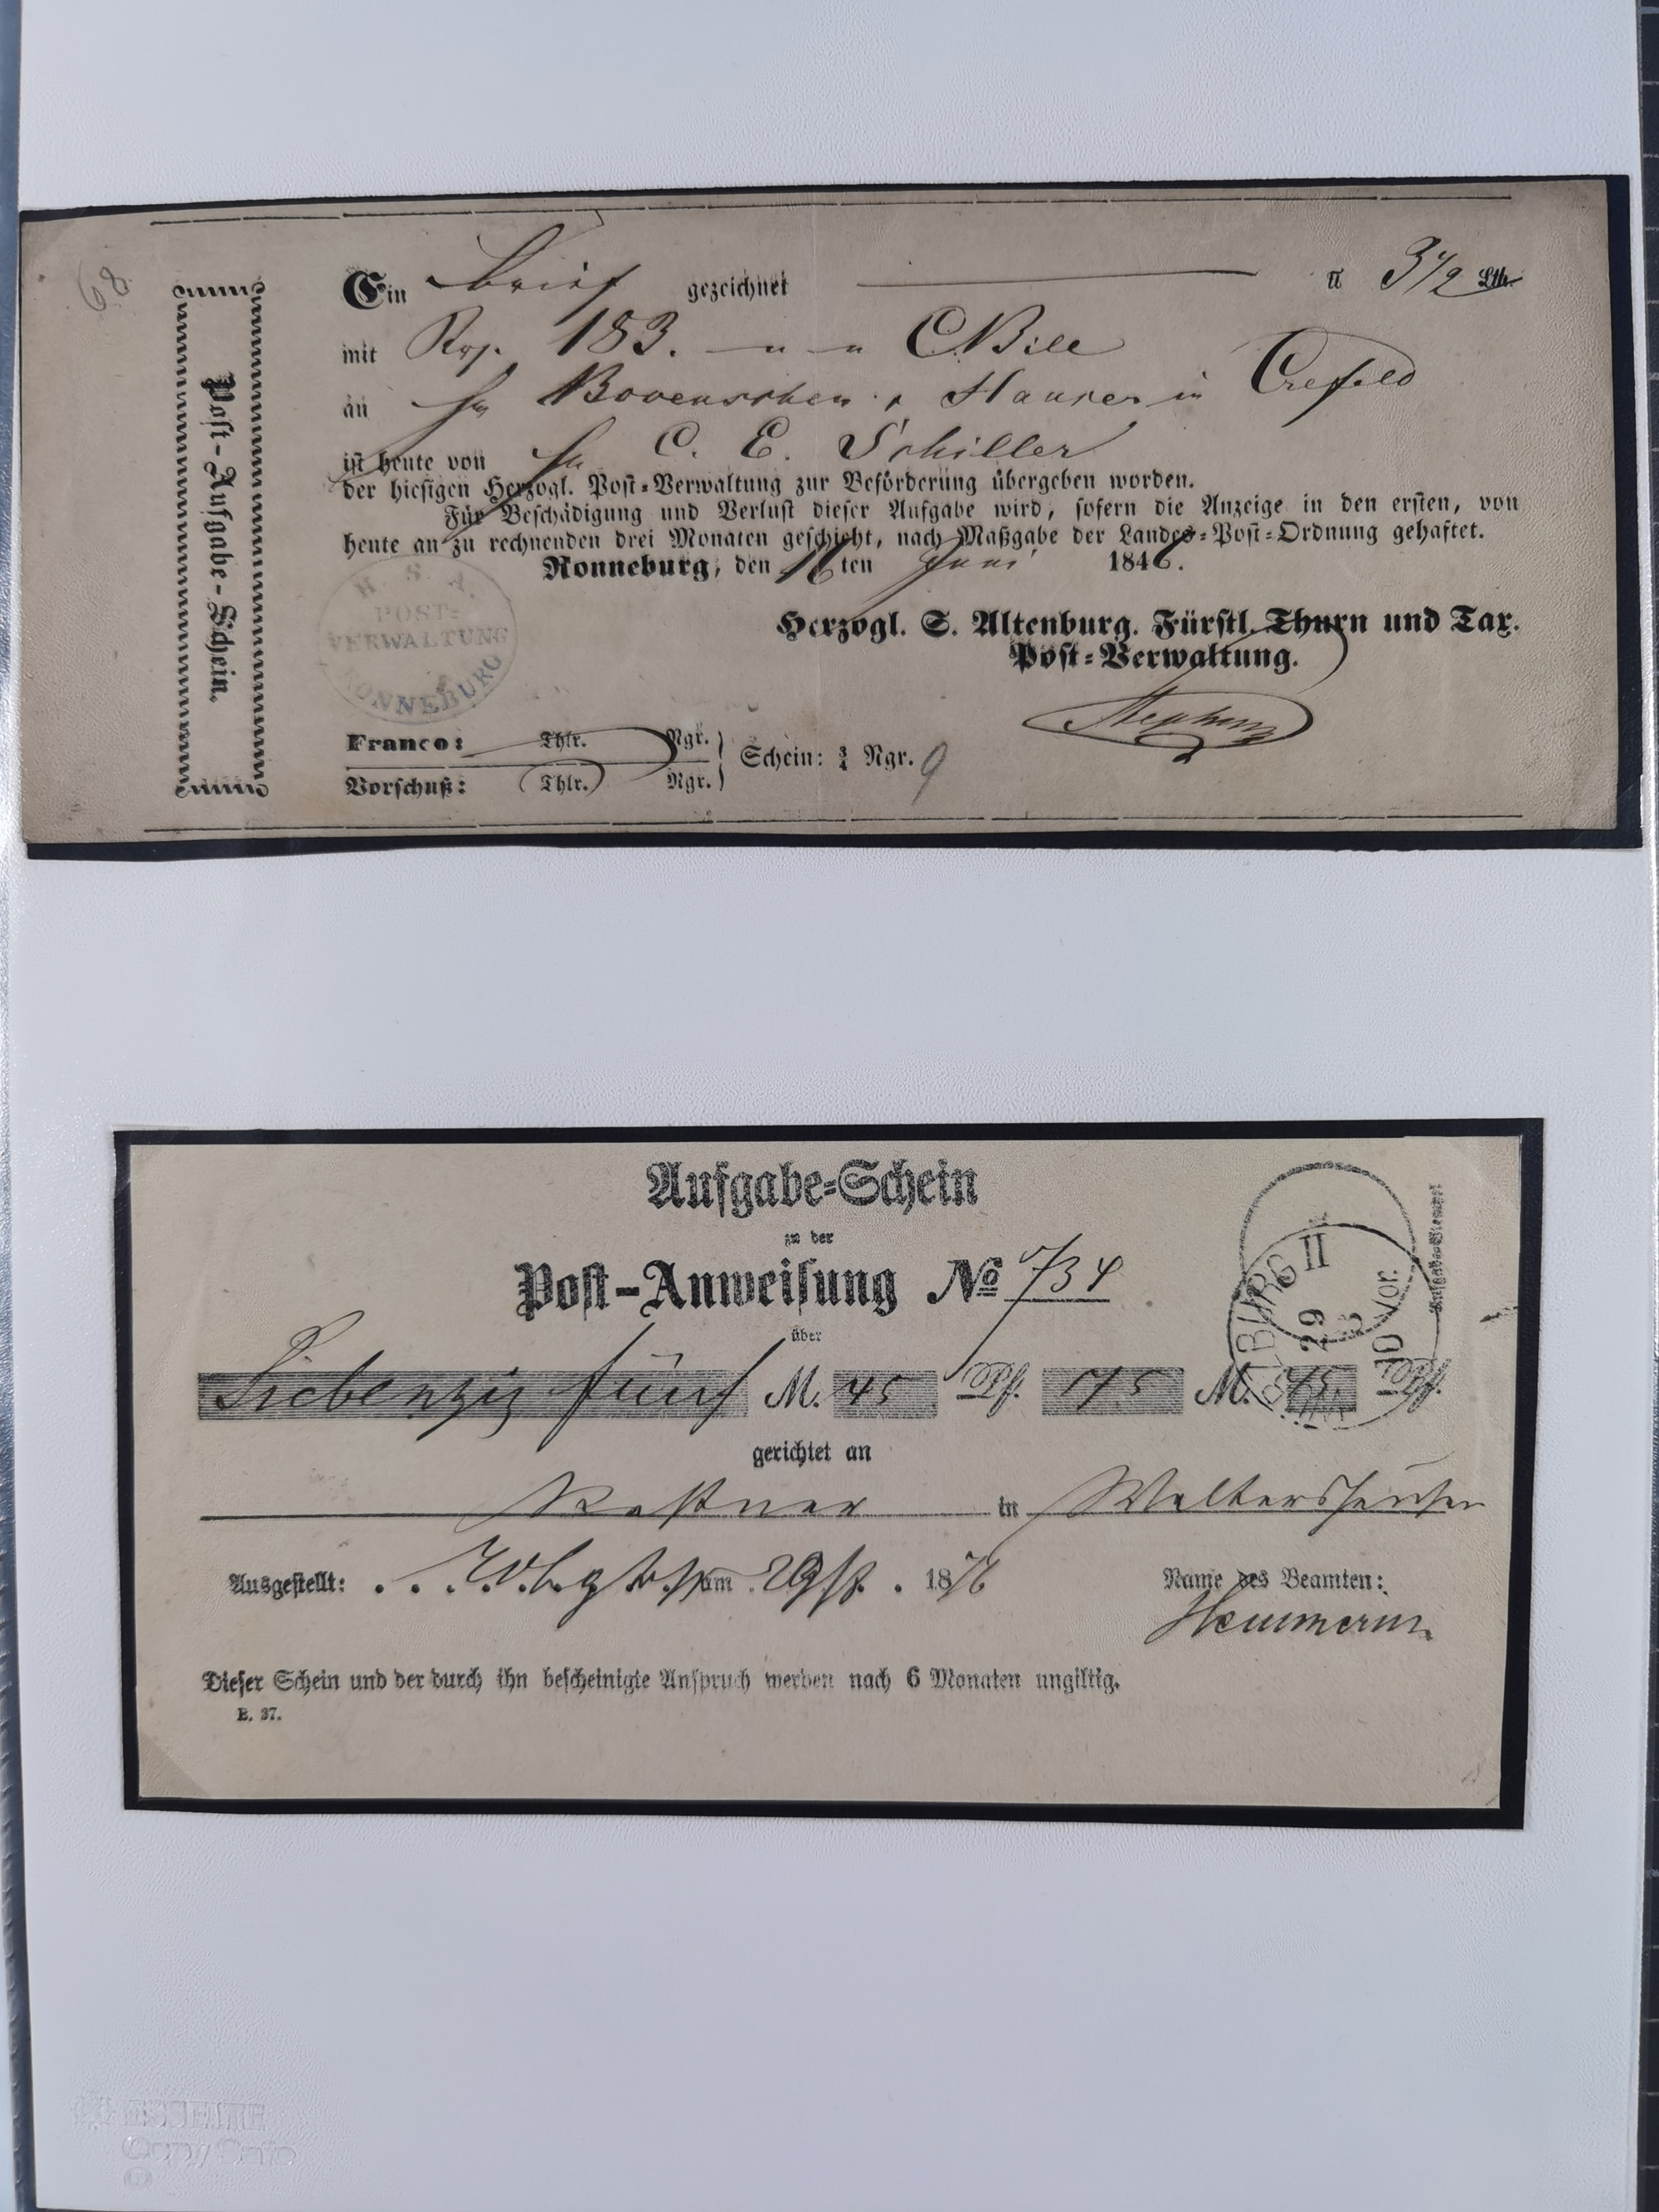 68
Post-Aufgabe-Schein.
Ein Brief gezeichnet ℔ 3 1/2 Lth.
mit 183. CBill
an Bovenschen Hauser in Crefeld
ist heute von C. E. Schiller
der hiesigen Herzogl. Post-Verwaltung zur Beförderung übergeben worden.
Für Beschädigung und Verlust dieser Aufgabe wird, sofern die Anzeige in den ersten, von
heute an zu rechnenden drei Monaten geschieht, nach Maßgabe der Landes-Post-Ordnung gehaftet.
Ronneburg, den 16ten Juni 1846.
H. S. A.
POST-
VERWALTUNG
RONNEBURG
Herzogl. S. Altenburg. Fürstl. Thurn und Tax.
Post-Verwaltung.
Franco: Thlr. Ngr.
Vorschuß: Thlr. Ngr.
Schein: ¾ Ngr. 9
Aufgabe-Schein
zu der
Post-Anweisung No 734
über
Siebenzig fünf M. 45 Pf. 75 M. 45 Pf.
gerichtet an
in Waltershausen
Ausgestellt: am 29/3. 1876
Name des Beamten:
Dieser Schein und der durch ihn bescheinigte Anspruch werden nach 6 Monaten ungiltig.
B. 37.
Aufgabe-Stempel
BURG II
29
3
10 Vor.
Copy Safe